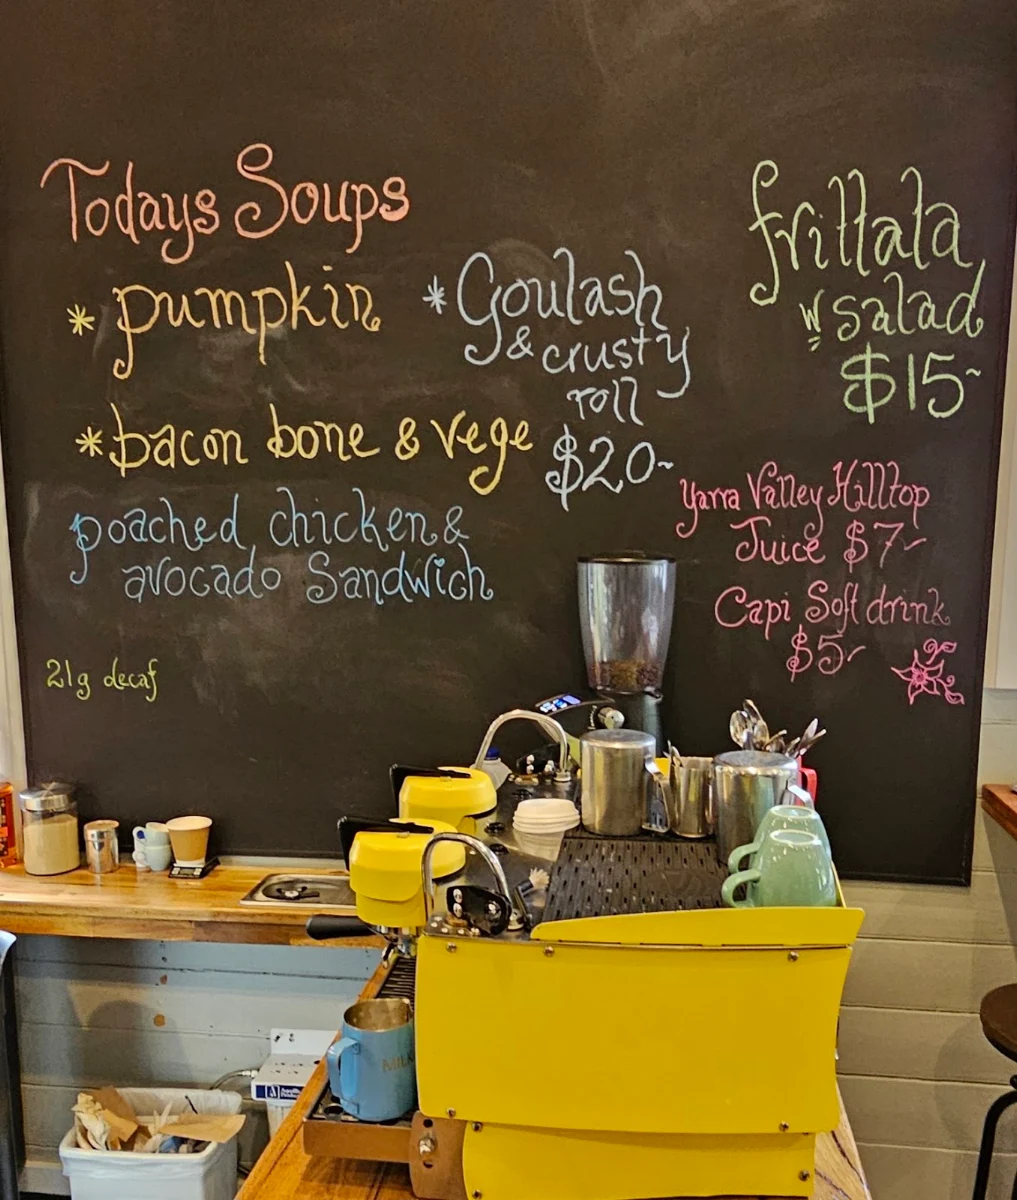 Todays Soups
* pumpkin
* bacon bone & vege
* Goulash
& crusty
roll
$20~
poached chicken &
avocado Sandwich
21g decaf
frittata
w salad
$15~
Yarra Valley Hilltop
Juice $7~
Capi Soft drink
$5~